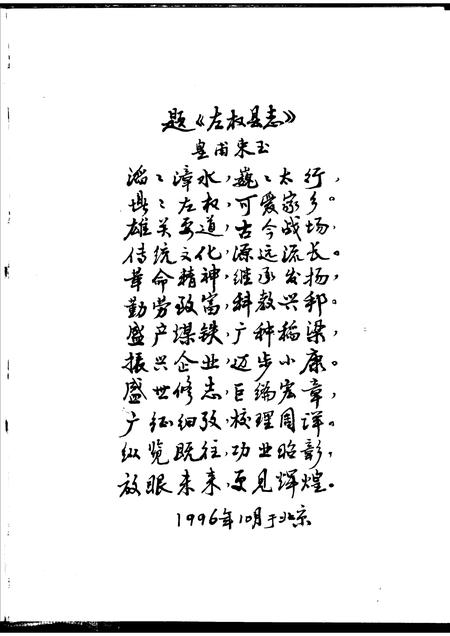 题《左权县志》
皇甫束玉
滔〻漳水，巍〻太行，
堪〻左权，可爱家乡。
雄关要道，古今战场，
传统文化，源远流长。
革命精神，继承发扬，
勤劳致富，科教兴邦。
盛产煤铁，广种梁，
振兴企业，迈步小康。
盛世修志，巨编宏章，
广征细孜，校理周详。
纵览既往，功业昭彰，
放眼未来，更见辉煌。
1996年10月于北京